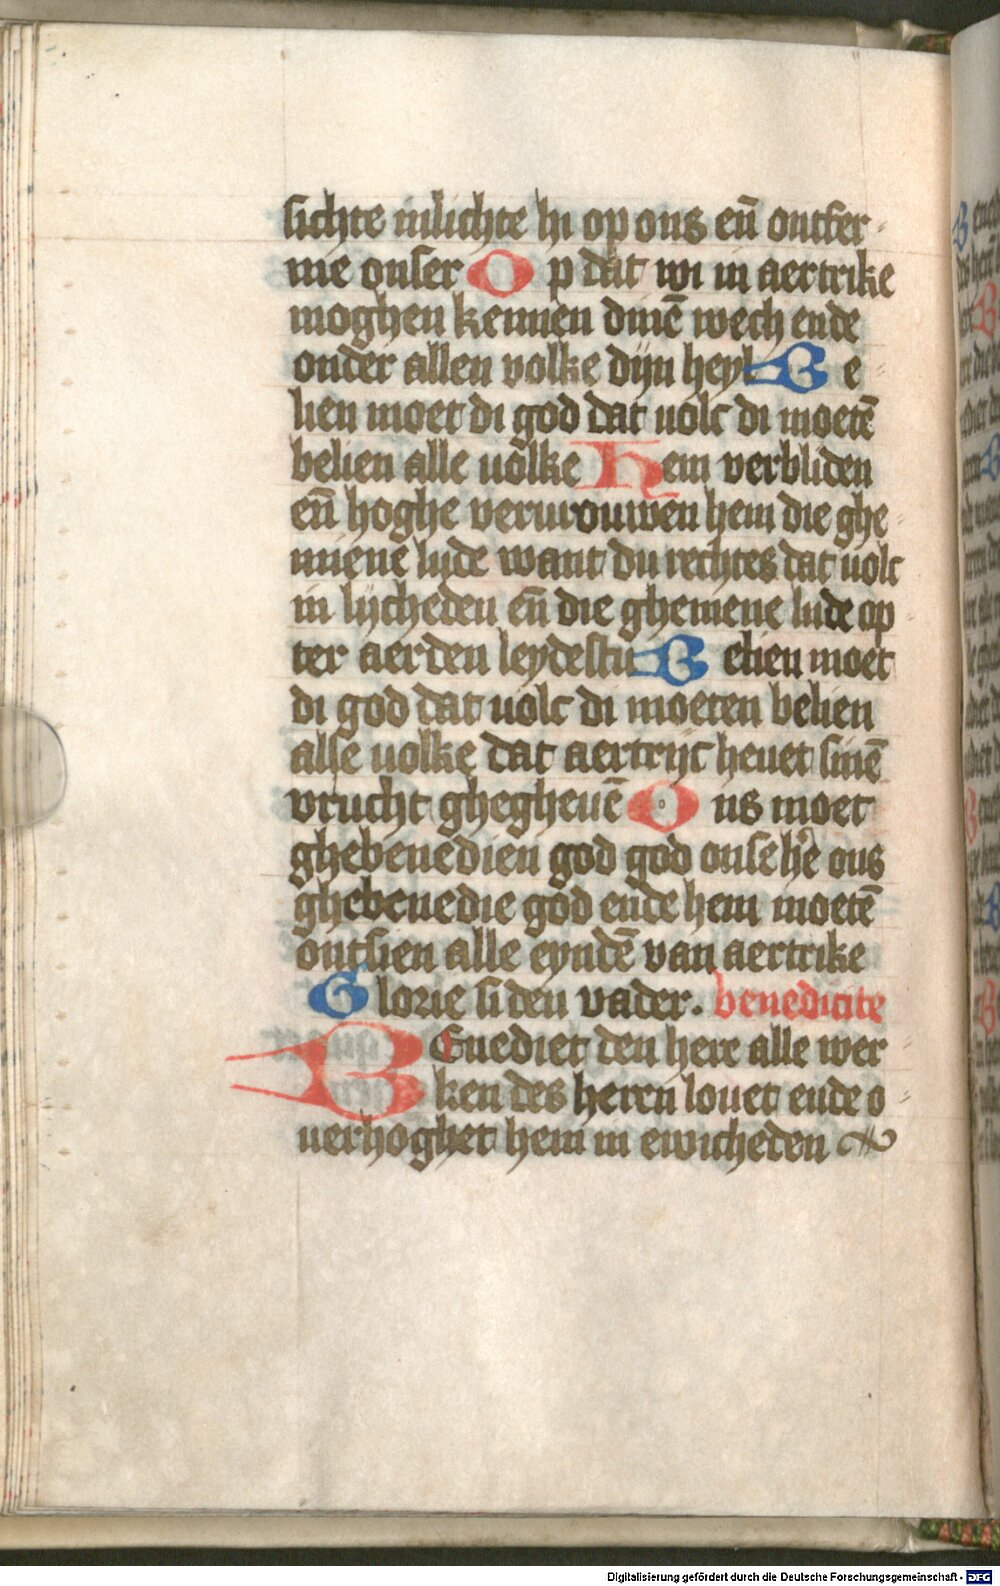 sichte inlichte hi op ons en̄ ontfer-
me onser Op dat wi in aertrike
moghen kennen dinē wech ende
onder allen volke dijn heyl Be
lien moet di god dat uolc di moetē
belien alle uolke Hem verbliden
en̄ hoghe vervrouwen hem die ghe-
miene lude want du rechtes dat uolc
in lijcheden en̄ die ghemene lude op
ter aerden leydestu Belien moet
di god dat uolc di moeten belien
alse uolke dat aertrijc heuet sinē
vrucht ghegheuē Ons moet
ghebenedien god god onse he ons
ghebenedie god ende hem moetē
ontsien alle eyndē van aertrike
Glorie si den vader. benedicite
BEnediet den here alle wer
ken des heren louet ende o-
uerhoghet hem in ewicheden
Digitalisierung gefördert durch die Deutsche Forschungsgemeinschaft - DFG